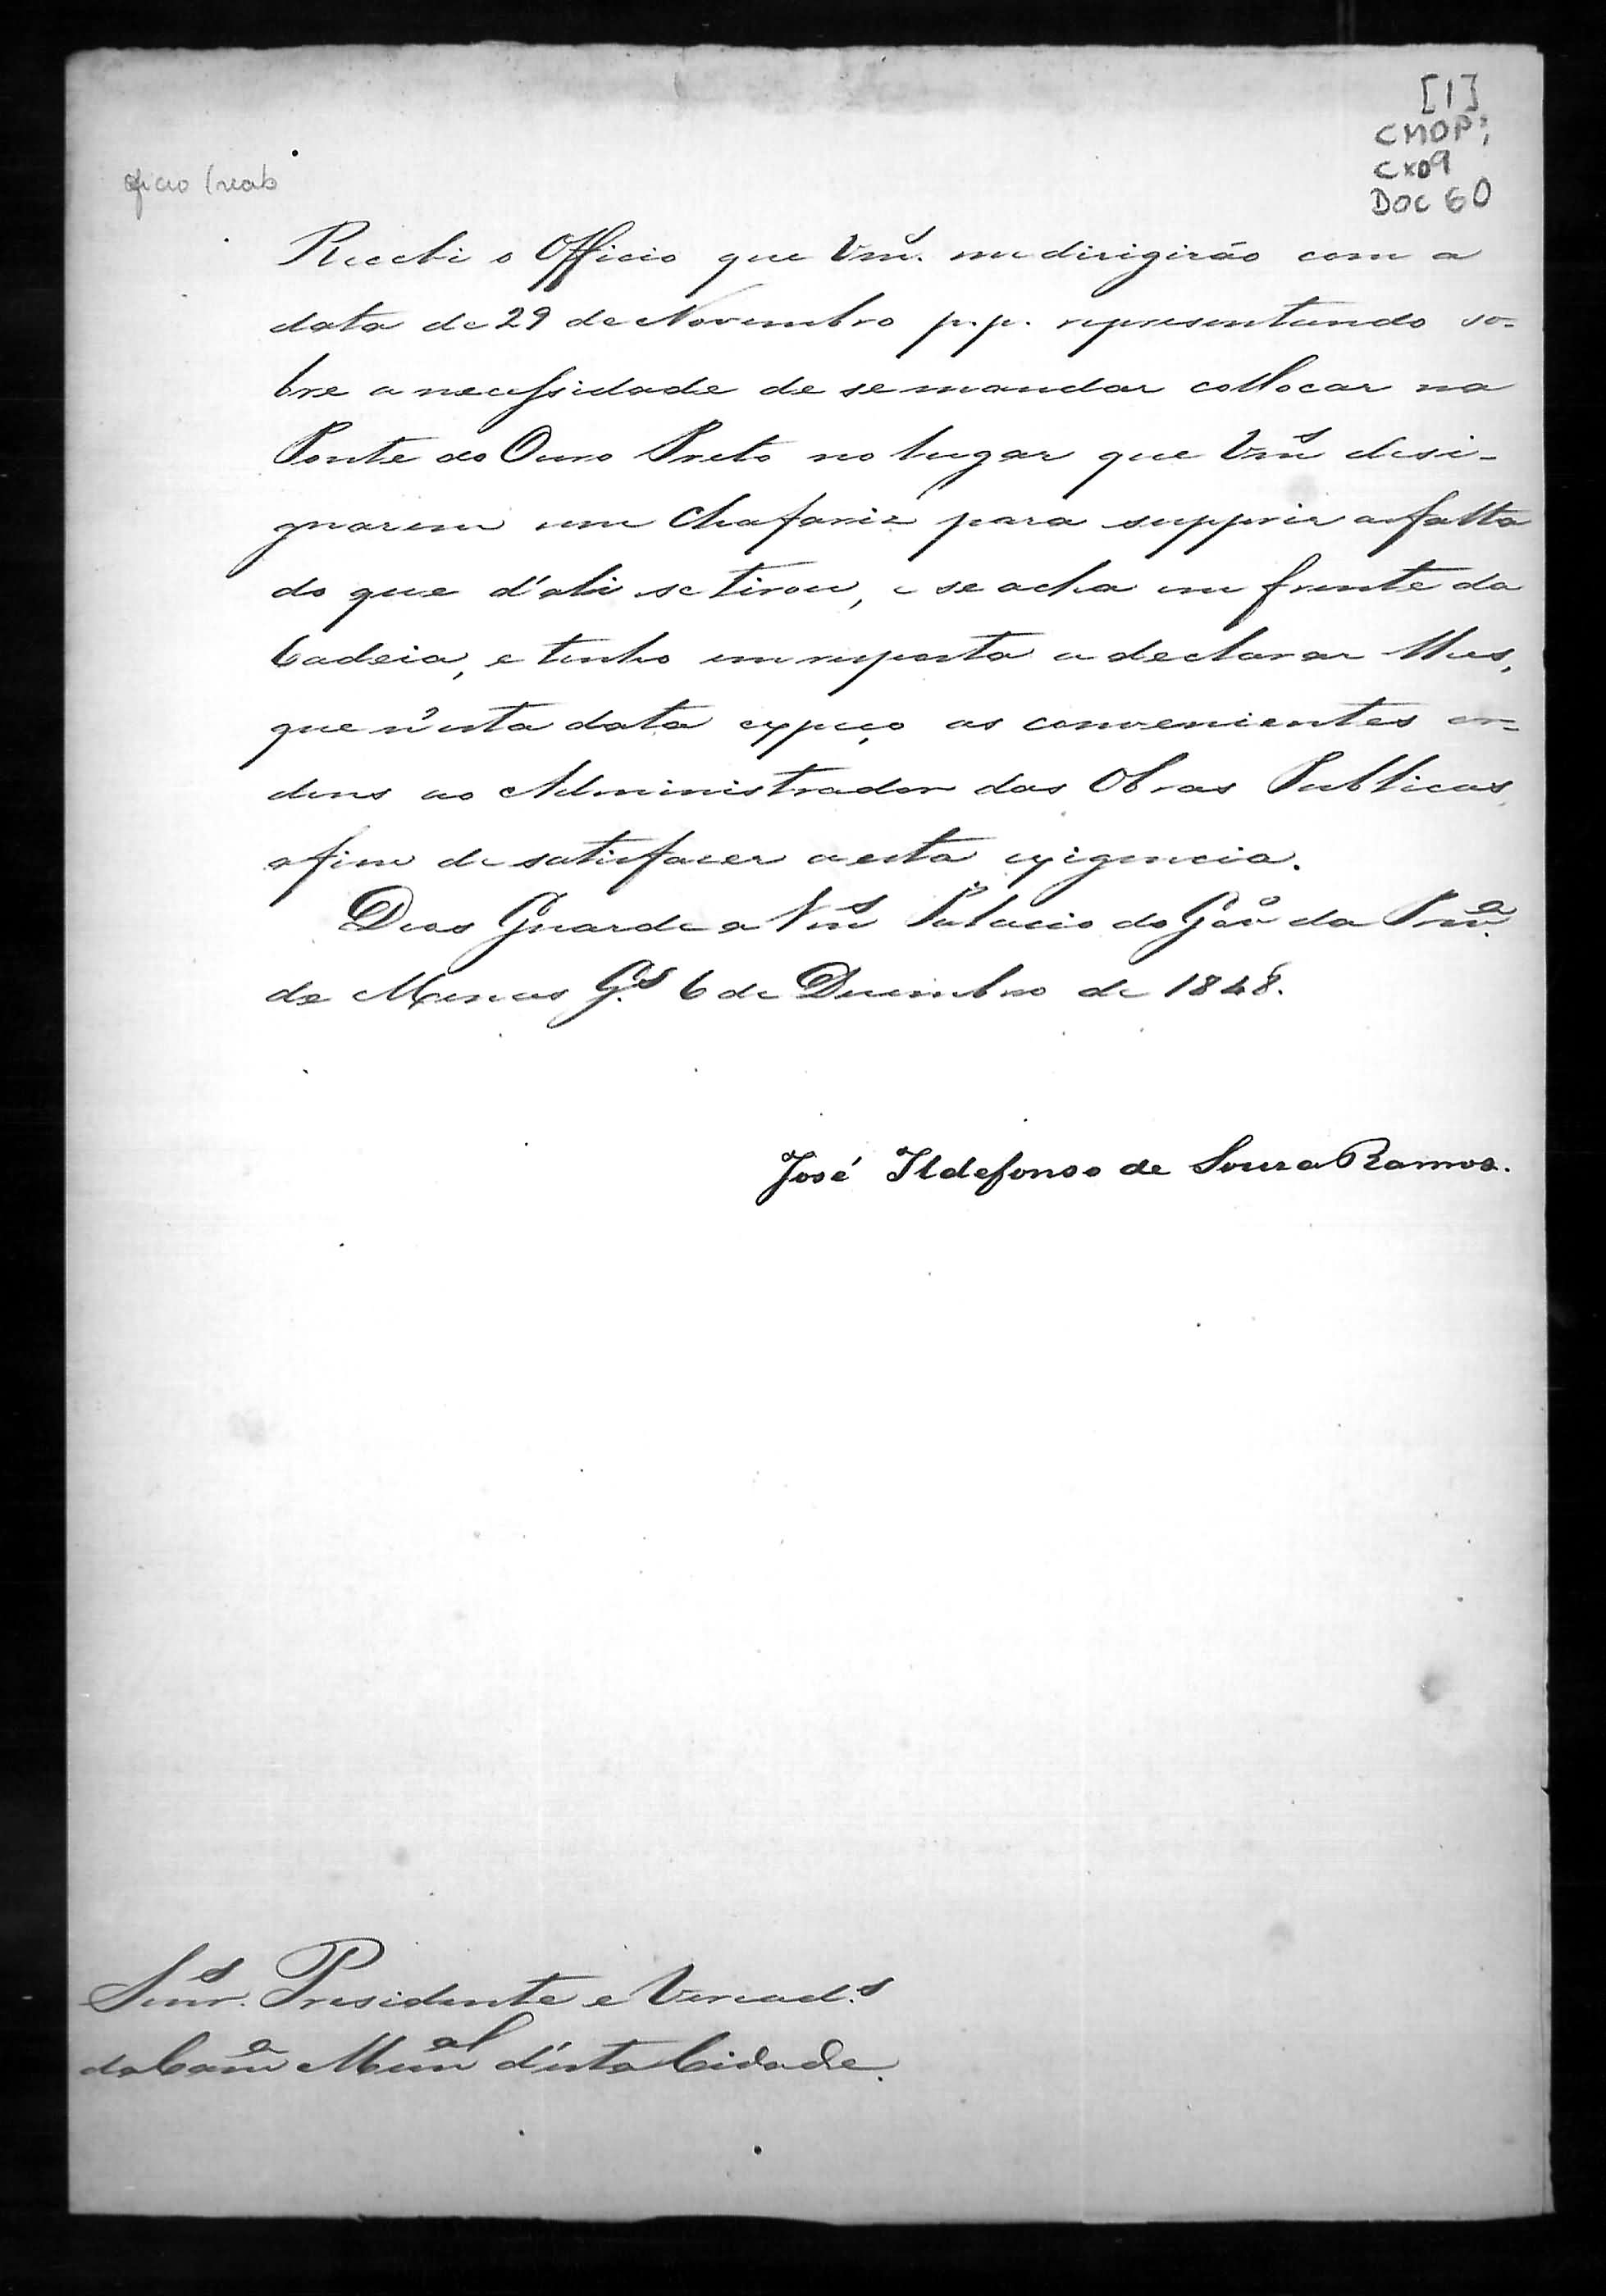 [1]
CMOP;
CX09
DOC 60
Recebi o Officio que Vm.ces me dirigirão com a
data de 29 de Novembro p.p. representando so-
bre a necessidade de se mandar collocar na
Ponte do Ouro Preto no lugar que Vm.ces desi-
gnarem um Chafariz para supprir a falta
do que d'ali se tirou, e se acha em frente da
Cadeia, e tenho em resposta a declarar lhes,
que n'esta data expeço as convenientes or-
dens ao Administrador das Obras Publicas,
afim de satisfazer a esta exigencia.
Deos Guarde a Vm.ces Palacio do Gov.o da Prov.a
de Minas G.s 6 de Dezembro de 1848.
José Ildefonso de Souza Ramos.
Senr.s Presidente e Veread.s
da Cam.a Mun.al d'esta Cidade.